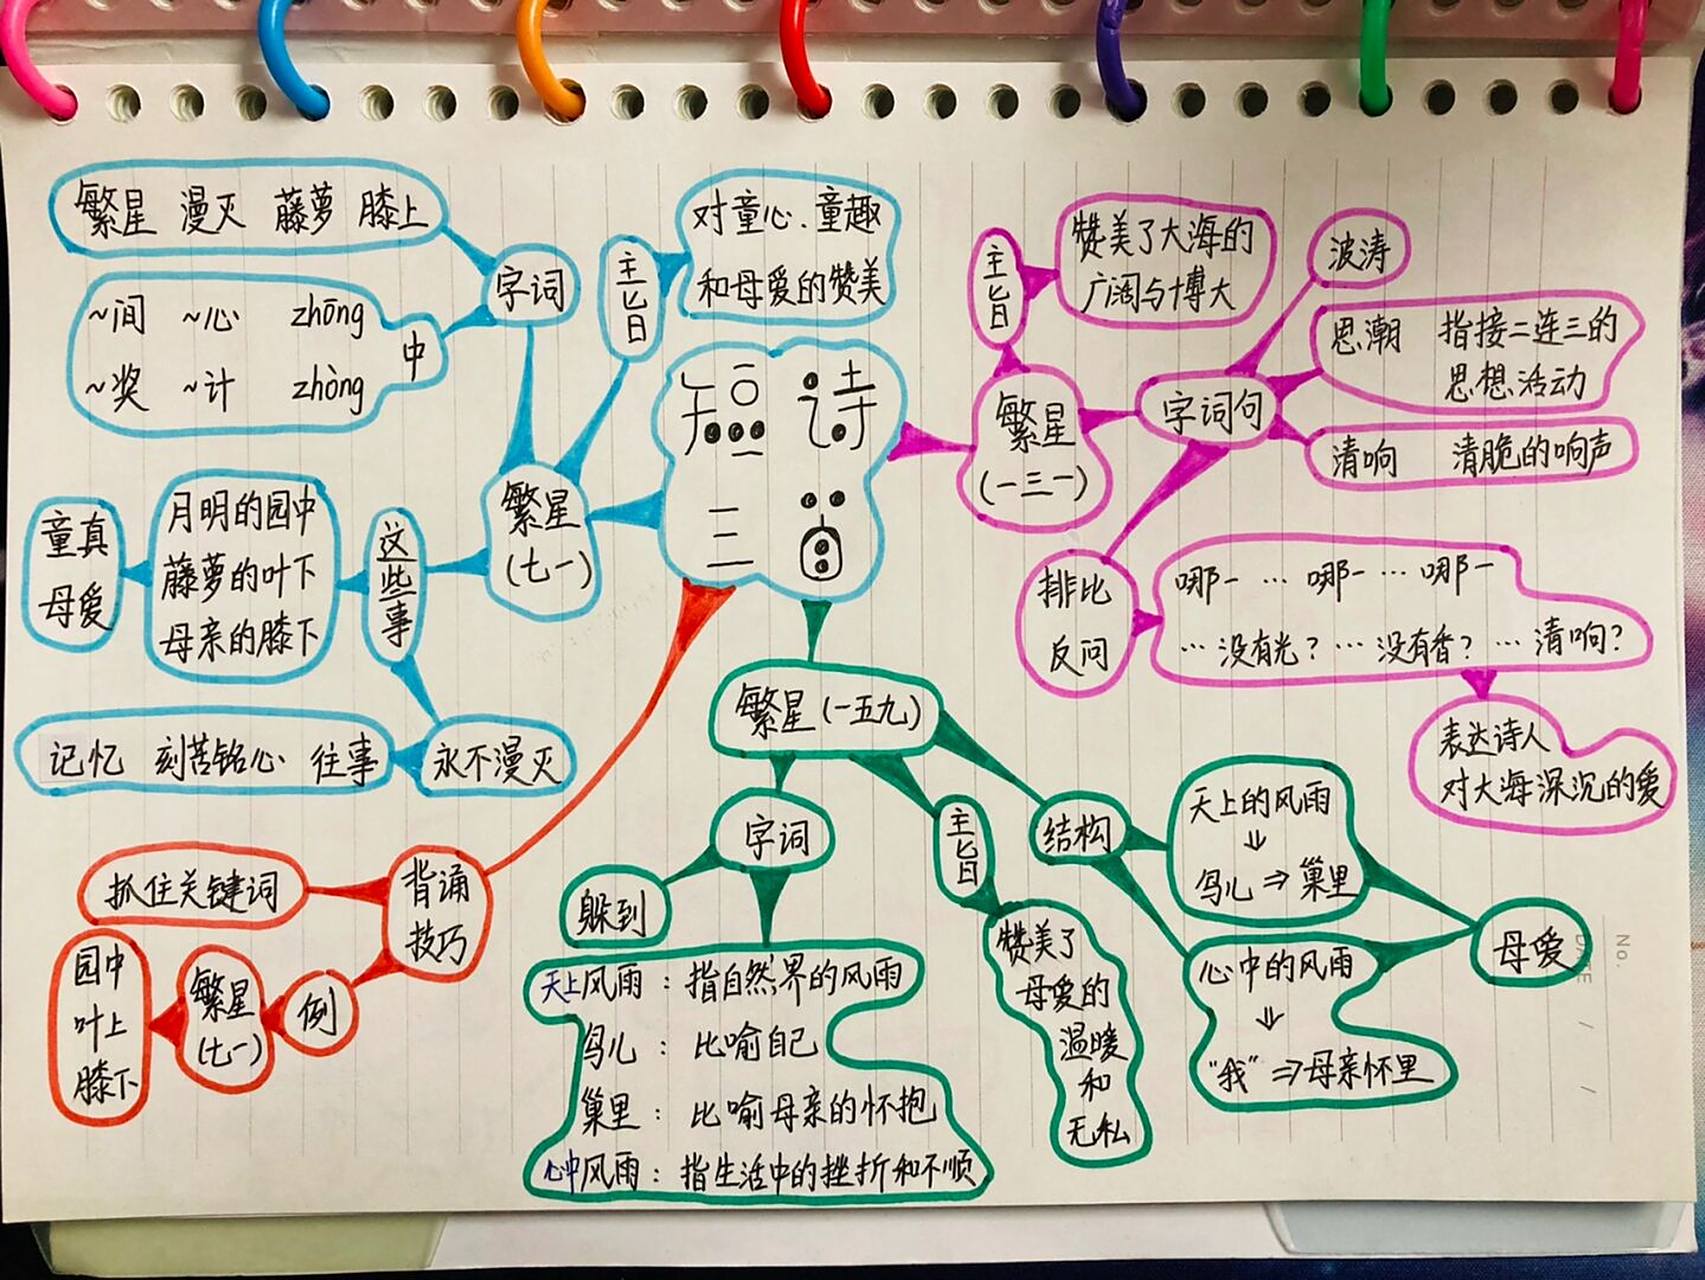 短诗
三首
繁星 漫灭 藤萝 膝上
字词
~间 ~心 zhōng
~奖 ~计 zhòng
中
主旨
对童心、童趣
和母爱的赞美
繁星
(七一)
这些事
月明的园中
藤萝的叶下
母亲的膝下
童真
母爱
永不漫灭
记忆 刻苦铭心 往事
繁星
(一三一)
主旨
赞美了大海的
广阔与博大
字词句
波涛
思潮 指接二连三的
思想活动
清响 清脆的响声
排比
反问
哪一 … 哪一 … 哪一
… 没有光? … 没有香? … 清响?
表达诗人
对大海深沉的爱
繁星(一五九)
字词
躲到
天上风雨：指自然界的风雨
鸟儿：比喻自己
巢里：比喻母亲的怀抱
心中风雨：指生活中的挫折和不顺
主旨
赞美了
母爱的
温暖
和
无私
结构
天上的风雨
⇓
鸟儿⇒巢里
心中的风雨
⇓
“我”⇒母亲怀里
母爱
背诵
技巧
抓住关键词
例
繁星
(七一)
园中
叶上
膝下
No.
DATE / /